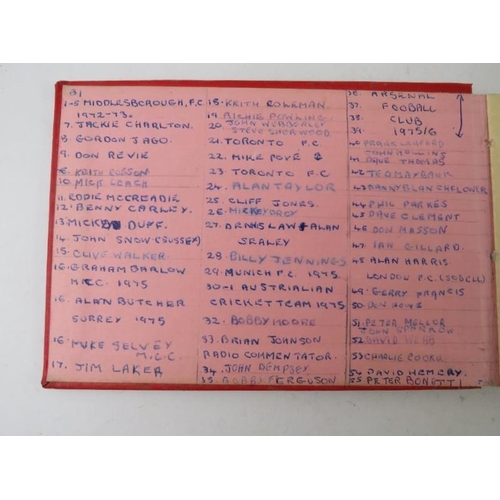 1-5 MIDDLESBOROUGH, F.C.
1972-73.
7, JACKIE CHARLTON.
8. GORDON JAGO.
9. DON REVIE
KEITH ROBSON
10. MICK LEACH
11. EDDIE MCCREADIE
12. BENNY CARLEY.
13. MICK DUFF.
14. JOHN SNOW (SUSSEX)
15. CLIVE WALKER.
16. GRAHAM BARLOW
M.C.C. 1975
16. ALAN BUTCHER
SURREY 1975
16. MIKE SELVEY
M.C.C.
17. JIM LAKER
18. KEITH COLEMAN.
19. RICHIE POWLING
20. JOHN WEBBERLEY
STEVE SHERWOOD
21. TORONTO F.C
22. MIKE POYE
23 TORONTO F.C
24. ALAN TAYLOR
25. CLIFF JONES.
26. MICKY DROY
27. DENIS LAW + ALAN
SEALEY
28. BILLY JENNINGS
29. MUNICH F.C. 1975.
30-1 AUSTRIALIAN
CRICKET TEAM 1975
32. BOBBY MOORE
33. BRIAN JOHNSON
RADIO COMMENTATOR.
34. JOHN DEMPSEY
35. BOBBY FERGUSON
36. ARSENAL
37. FOOBALL
38. CLUB
39. 1975/6
40. FRANK LAMPARD
JOHN HOLLINS
41. DAVE THOMAS
42. TED MAYBANK
43. DANNY BLANCHFLOWER
44. PHIL PARKES
45. DAVE CLEMENT
46. DON MASSON
47. IAN GILLARD.
48. ALAN HARRIS
LONDON F.C. (SOBELL)
49. GERRY FRANCIS
50. DON HOWE
51. PETER MELLOR
JOHN SPARROW
52. DAVID WEBB
53. CHARLIE COOKE
54. DAVID HEMERY.
55. PETER BONETTI